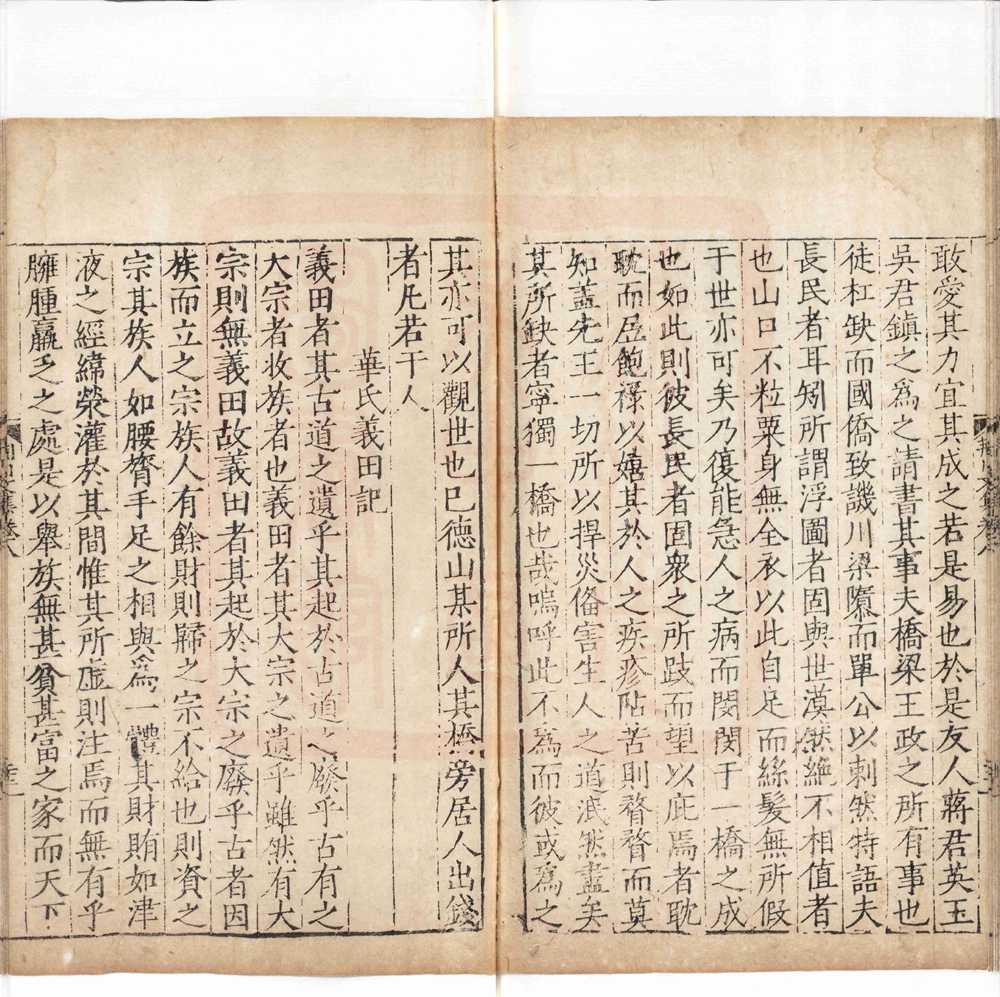 敢愛其力宜其成之若是易也於是友人蔣君英玉
吳君鎮之爲之請書其事夫橋梁王政之所有事也
徒杠缺而國僑致譏川梁隳而單公以刺然特語夫
長民者耳矧所謂浮圖者固與世漠然絶不相值者
也山口不粒粟身無全衣以此自足而絲髮無所假
于世亦可矣乃復能急人之病而閔閔于一橋之成
也如此則彼長民者固衆之所跂而望以庇焉者耽
耽而居飽祿以嬉其於人之疾疹阽苦則瞀瞀而莫
知蓋先王一切所以捍災俻害生人之道泯然盡矣
其所缺者寧獨一橋也哉嗚呼此不爲而彼或爲之
其亦可以觀世也已德山某所人其橋旁居人出錢
者凡若干人
華氏義田記
義田者其古道之遺乎其起於古道之廢乎古有之
大宗者收族者也義田者其大宗之遺乎雖然有大
宗則無義田故義田者其起於大宗之廢乎古者因
族而立之宗族人有餘財則歸之宗不給也則資之
宗其族人如腰膂手足之相與爲一體其財賄如津
液之經緯滎灌於其間惟其所虛則注焉而無有乎
臃腫羸乏之處是以舉族無甚貧甚富之家而天下